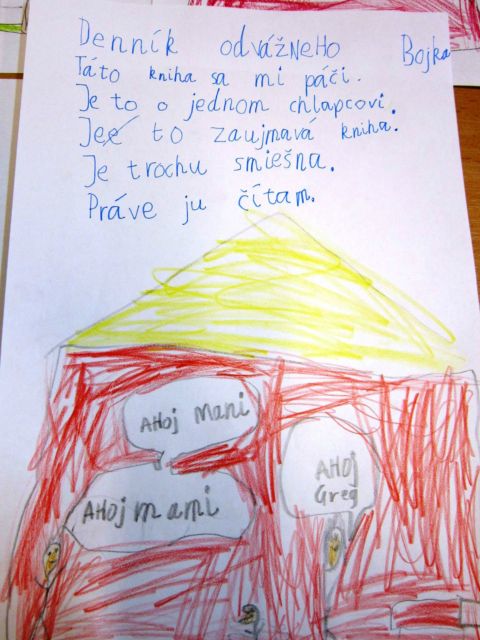 Denník odvážneho Bojka
Táto kniha sa mi páči.
Je to o jednom chlapcovi.
Je to zaujmavá kniha.
Je trochu smiešna.
Práve ju čítam.
AHoj Mani
AHoj mami
AHoj
Greg